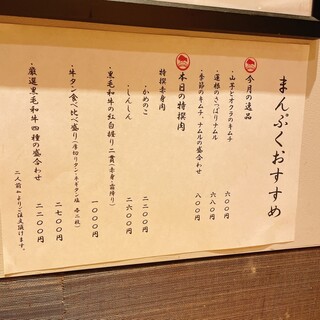 まんぷくおすすめ
今月の逸品
・山芋とオクラのキムチ 六〇〇円
・蓮根のさっぱりナムル 六八〇円
・季節のキムチ、ナムルの盛合わせ 八〇〇円
本日の特撰肉
特撰赤身肉
・かめのこ 二二〇〇円
・しんしん 二六〇〇円
・黒毛和牛の紅白握り二貫(赤身・霜降り) 一〇〇〇円
・牛タン食べ比べ盛り(厚切りタン・ネギタン塩 各二枚) 二七〇〇円
・厳選黒毛和牛四種の盛合わせ 二二〇〇円
二人前よりご注文頂けます。